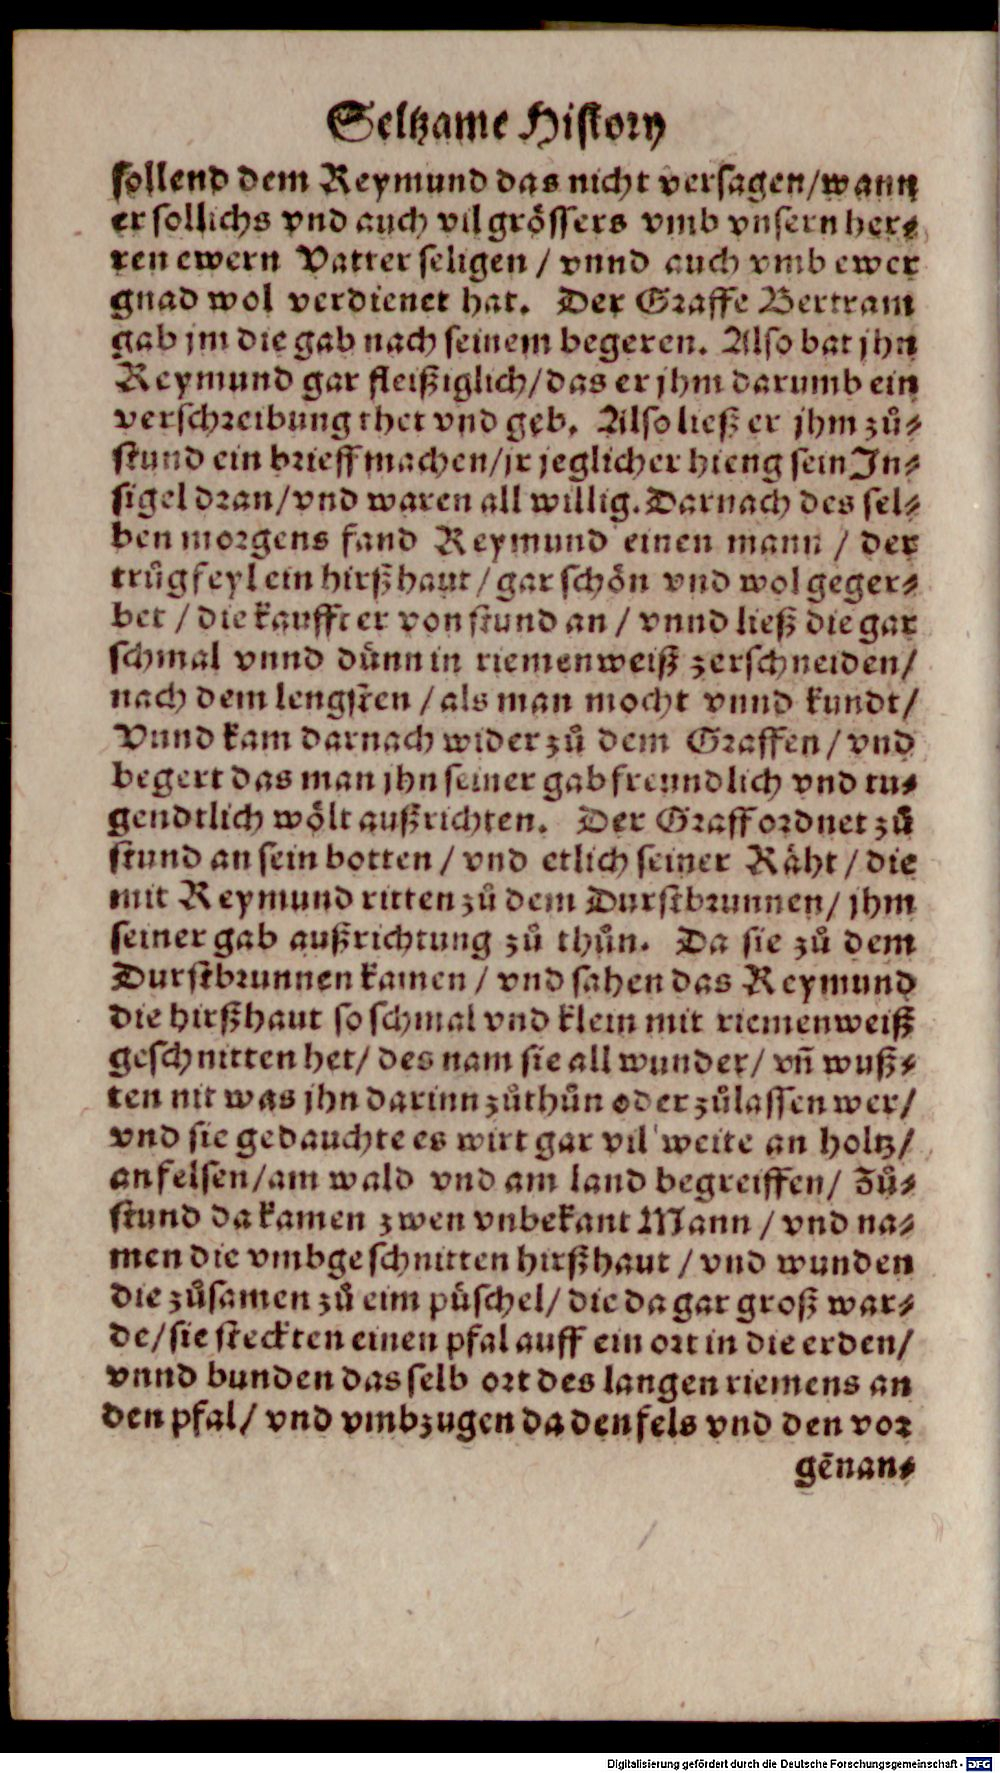 Seltzame History
sollend dem Reymund das nicht versagen/wann
er sollichs vnd auch vil grössers vmb vnsern her⸗
ren ewern Vatter seligen / vnnd auch vmb ewer
gnad wol verdienet hat. Der Graffe Bertram
gab jm die gab nach seinem begeren. Also bat jhn
Reymund gar fleißiglich/das er jhm darumb ein
verschreibung thet vnd geb. Also ließ er jhm zů⸗
stund ein brieff machen/jr jeglicher hieng sein In⸗
sigel dran/vnd waren all willig. Darnach des sel⸗
ben morgens fand Reymund einen mann / der
trůg feyl ein hirßhaut / gar schön vnd wol geger⸗
bet / die kaufft er von stund an / vnnd ließ die gar
schmal vnnd dünn in riemenweiß zerschneiden/
nach dem lengsten / als man mocht vnnd kundt/
Vnnd kam darnach wider zů dem Graffen / vnd
begert das man jhn seiner gab freundlich vnd tu⸗
gendtlich wölt außrichten. Der Graff ordnet zů
stund an sein botten / vnd etlich seiner Räht / die
mit Reymund ritten zů dem Durstbrunnen/ jhm
seiner gab außrichtung zů thůn. Da sie zů dem
Durstbrunnen kamen / vnd sahen das Reymund
die hirßhaut so schmal vnd klein mit riemenweiß
geschnitten het/ des nam sie all wunder/ vñ wuß⸗
ten nit was jhn darinn zůthůn oder zůlassen wer/
vnd sie gedauchte es wirt gar vil weite an holtz/
an felsen/am wald vnd am land begreiffen/ Zů⸗
stund da kamen zwen vnbekant Mann / vnd na⸗
men die vmbgeschnitten hirßhaut / vnd wunden
die zůsamen zů eim püschel/ die da gar groß war⸗
de/sie steckten einen pfal auff ein ort in die erden/
vnnd bunden das selb ort des langen riemens an
den pfal/ vnd vmbzugen da den fels vnd den vor
gẽnan⸗
Digitalisierung gefördert durch die Deutsche Forschungsgemeinschaft - DFG